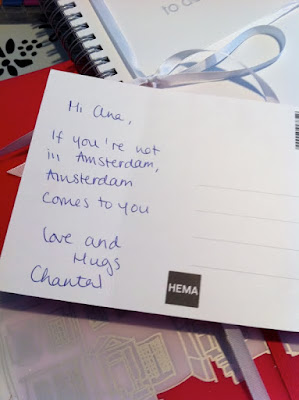 Hi Ana,
If you're not
in Amsterdam,
Amsterdam
comes to you
Love and
Hugs
Chantal
HEMA